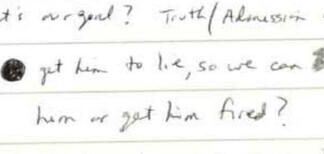 t's our goal? Truth/Admission
get him to lie, so we can
him or get him fired?